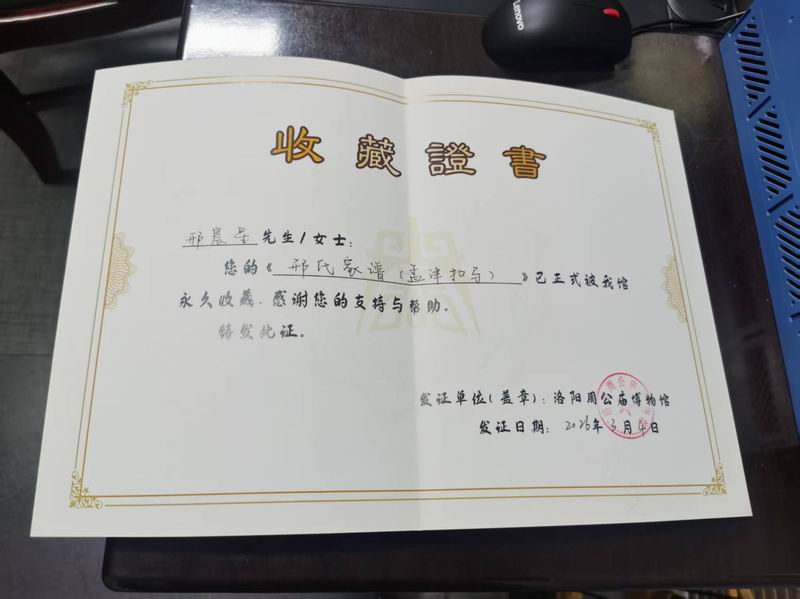 lenovo
收藏證書
邢晨星 先生/女士:
您的《邢氏家谱(孟津扣马)》已正式被我馆
永久收藏.感谢您的支持与帮助.
特发此证.
发证单位(盖章):洛阳周公庙博物馆
发证日期: 2026年3月4日